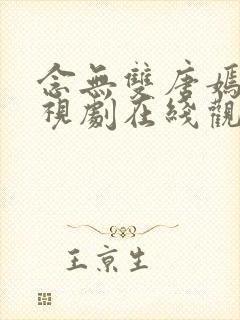 念無雙唐嫣
視劇在綫觀
王京生